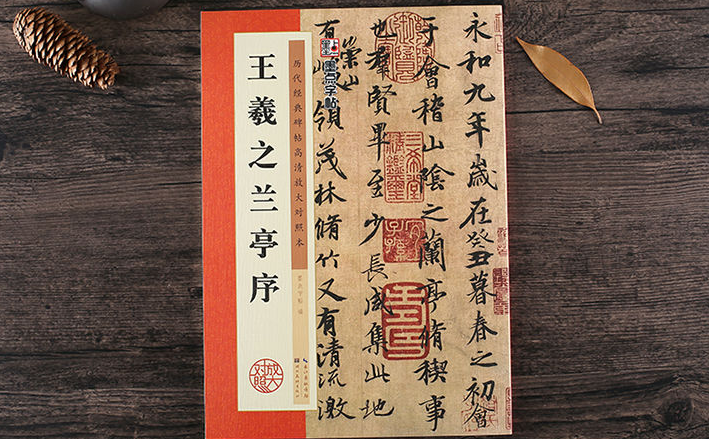 永和九年歲在癸丑暮春之初會
于會稽山陰之蘭亭脩稧事
也羣賢畢至少長咸集此地
有崇山
領茂林脩竹又有清流激
墨点字帖
历代经典碑帖高清放大对照本
墨点字帖 编
王羲之兰亭序
放大对照